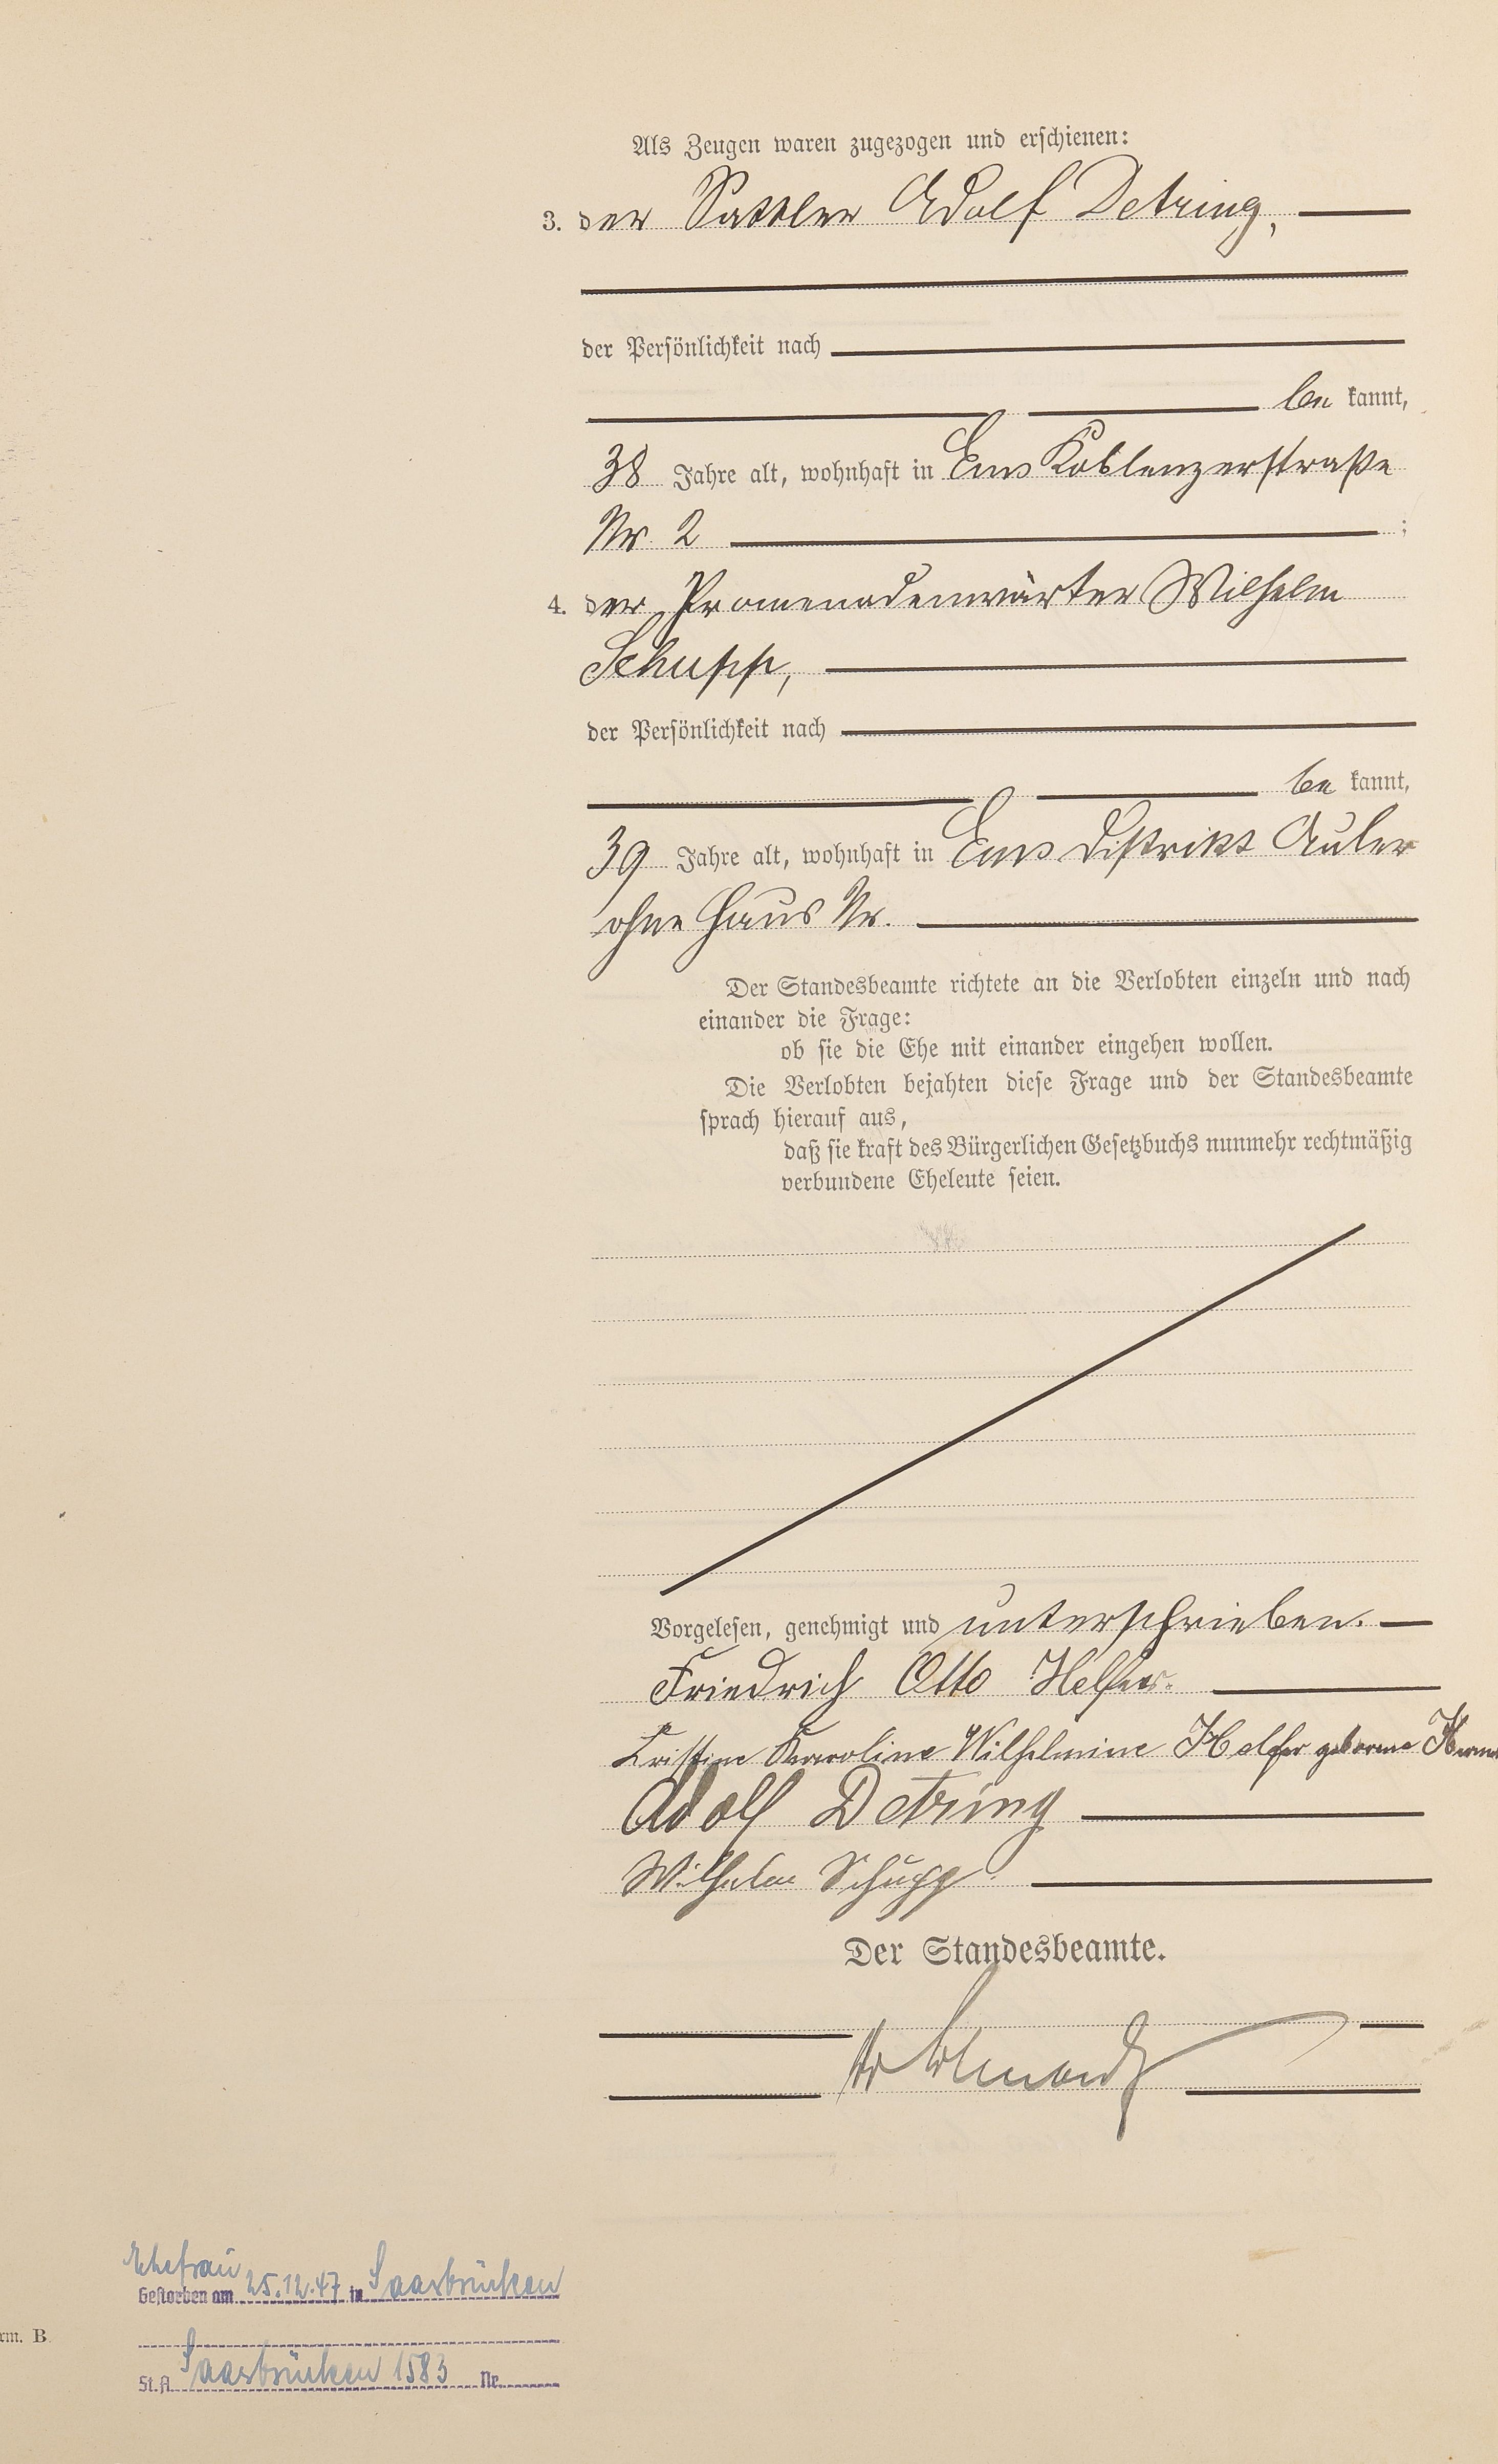 Als Zeugen waren zugezogen und erschienen:
3. der Sattler Adolf Detring,
der Persönlichkeit nach
be kannt,
38 Jahre alt, wohnhaft in Ems Koblenzerstraße
Nr. 2 ;
4. der Promenadenwärter Wilhelm
Schupp,
der Persönlichkeit nach
be kannt,
39 Jahre alt, wohnhaft in Ems Distrikt Auler
ohne Haus Nr.
Der Standesbeamte richtete an die Verlobten einzeln und nach
einander die Frage:
ob sie die Ehe mit einander eingehen wollen.
Die Verlobten bejahten diese Frage und der Standesbeamte
sprach hierauf aus,
daß sie kraft des Bürgerlichen Gesetzbuchs nunmehr rechtmäßig
verbundene Eheleute seien.
Vorgelesen, genehmigt und unterschrieben.
Friedrich Otto Helfer.
Kristine Karoline Wilhelmine Helfer geborene
Adolf Detring
Wilhelm Schupp.
Der Standesbeamte.
Ehefrau
Gestorben am 25.12.47 in Saarbrücken
St.A. Saarbrücken 1583 Nr.
rm. B.